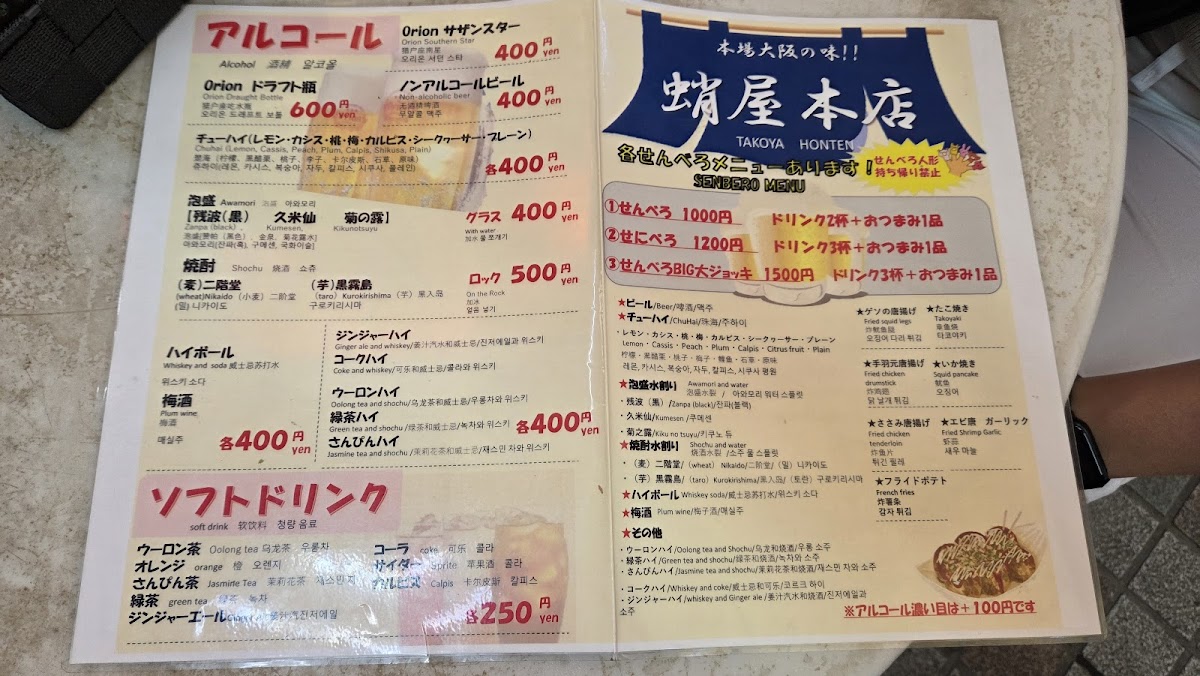 アルコール
Alcohol 酒精 알코올
Orion サザンスター
Orion Southern Star
猎户座南星
오리온 서던 스타
400円 yen
Orion ドラフト瓶
Orion Draught Bottle
오리온 드래프트 보틀
600円 yen
ノンアルコールビール
Non-alcoholic beer
无酒精啤酒
무알콜 맥주
400円 yen
チューハイ(レモン・カシス・桃・梅・カルピス・シークヮーサー・プレーン)
Chuhai (Lemon, Cassis, Peach, Plum, Calpis, Shikusa, Plain)
츄하이(레몬, 카시스, 복숭아, 자두, 칼피스, 시쿠사, 플레인)
各400円 yen
泡盛 Awamori 泡盛 아와모리
【残波（黒） 久米仙 菊の露】
Zanpa (black) 、 Kumesen, Kikunotsuyu
グラス 400円 yen
With water
焼酎 Shochu 烧酒 쇼츄
(麦)二階堂 (芋)黒霧島
(wheat)Nikaido（小麦）二阶堂 (taro) Kurokirishima（芋）黑入岛
(밀) 니카이도 구로키리시마
ロック 500円 yen
On the Rock
加冰
얼음 넣기
ハイボール
Whiskey and soda 威士忌苏打水
위스키 소다
梅酒
Plum wine
梅酒
매실주
各400円 yen
ジンジャーハイ
Ginger ale and whiskey/姜汁汽水和威士忌/진저에일과 위스키
コークハイ
Coke and whiskey/可乐和威士忌/콜라와 위스키
ウーロンハイ
Oolong tea and shochu/乌龙茶和威士忌/우롱차와 위스키
緑茶ハイ
Green tea and shochu/绿茶和威士忌/녹차와 위스키
さんぴんハイ
Jasmine tea and shochu /茉莉花茶和威士忌/재스민 차와 위스키
各400円 yen
ソフトドリンク
soft drink 软饮料 청량 음료
ウーロン茶 Oolong tea 乌龙茶 우롱차
オレンジ orange 橙 오렌지
さんぴん茶 Jasmine Tea 茉莉花茶 재스민 차
緑茶 green tea 绿茶 녹차
ジンジャーエール
コーラ coke 可乐 콜라
サイダー Sprite 苹果酒 콜라
カルピス Calpis 卡尔皮斯 칼피스
各250円 yen
本場大阪の味!!
蛸屋本店
TAKOYA HONTEN
各せんべろメニューあります！
SENBERO MENU
せんべろ人形
持ち帰り禁止
①せんべろ 1000円 ドリンク2杯＋おつまみ1品
②せにべろ 1200円 ドリンク3杯＋おつまみ1品
③せんべろBIG大ジョッキ 1500円 ドリンク3杯＋おつまみ1品
★ビール/Beer/啤酒/맥주
★チューハイ/ChuHai/珠海/주하이
・レモン・カシス・桃・梅・カルピス・シークヮーサー・プレーン
Lemon・Cassis・Peach・Plum・Calpis・Citrus fruit・Plain
레몬, 카시스, 복숭아, 자두, 칼피스, 시쿠사 평원
★泡盛水割り Awamori and water
泡盛水裂 / 아와모리 워터 스플릿
・残波（黒）/Zanpa (black)/잔파(블랙)
・久米仙/Kumesen /쿠메센
・菊之露/Kiku no tsuyu/키쿠노 듀
★焼酎水割り Shochu and water
烧酒水裂 /소주 물 스플릿
・（麦）二階堂/（wheat） Nikaido/二阶堂/（밀）니카이도
・（芋）黒霧島/（taro）Kurokirishima/黑入岛/（토란）구로키리시마
★ハイボール Whiskey soda/威士忌苏打水/위스키 소다
★梅酒 Plum wine/梅子酒/매실주
★その他
・ウーロンハイ/Oolong tea and Shochu/乌龙和烧酒/우롱 소주
・緑茶ハイ/Green tea and shochu/绿茶和烧酒/녹차와 소주
・さんぴんハイ/Jasmine tea and shochu/茉莉花茶和烧酒/재스민 차와 소주
・コークハイ/Whiskey and coke/威士忌和可乐/코르크 하이
・ジンジャーハイ/whiskey and Ginger ale /姜汁汽水和烧酒/진저에일과
소주
★ゲソの唐揚げ
Fried squid legs
炸鱿鱼腿
오징어 다리 튀김
★たこ焼き
Takoyaki
章鱼烧
타코야키
★手羽元唐揚げ
Fried chicken
drumstick
炸鸡翅
닭 날개 튀김
★いか焼き
Squid pancake
鱿鱼
오징어
★ささみ唐揚げ
Fried chicken
tenderloin
炸鱼片
튀긴 필레
★エビ唐 ガーリック
Fried Shrimp Garlic
虾蒜
새우 마늘
★フライドポテト
French fries
炸薯条
감자 튀김
※アルコール濃い目は＋100円です